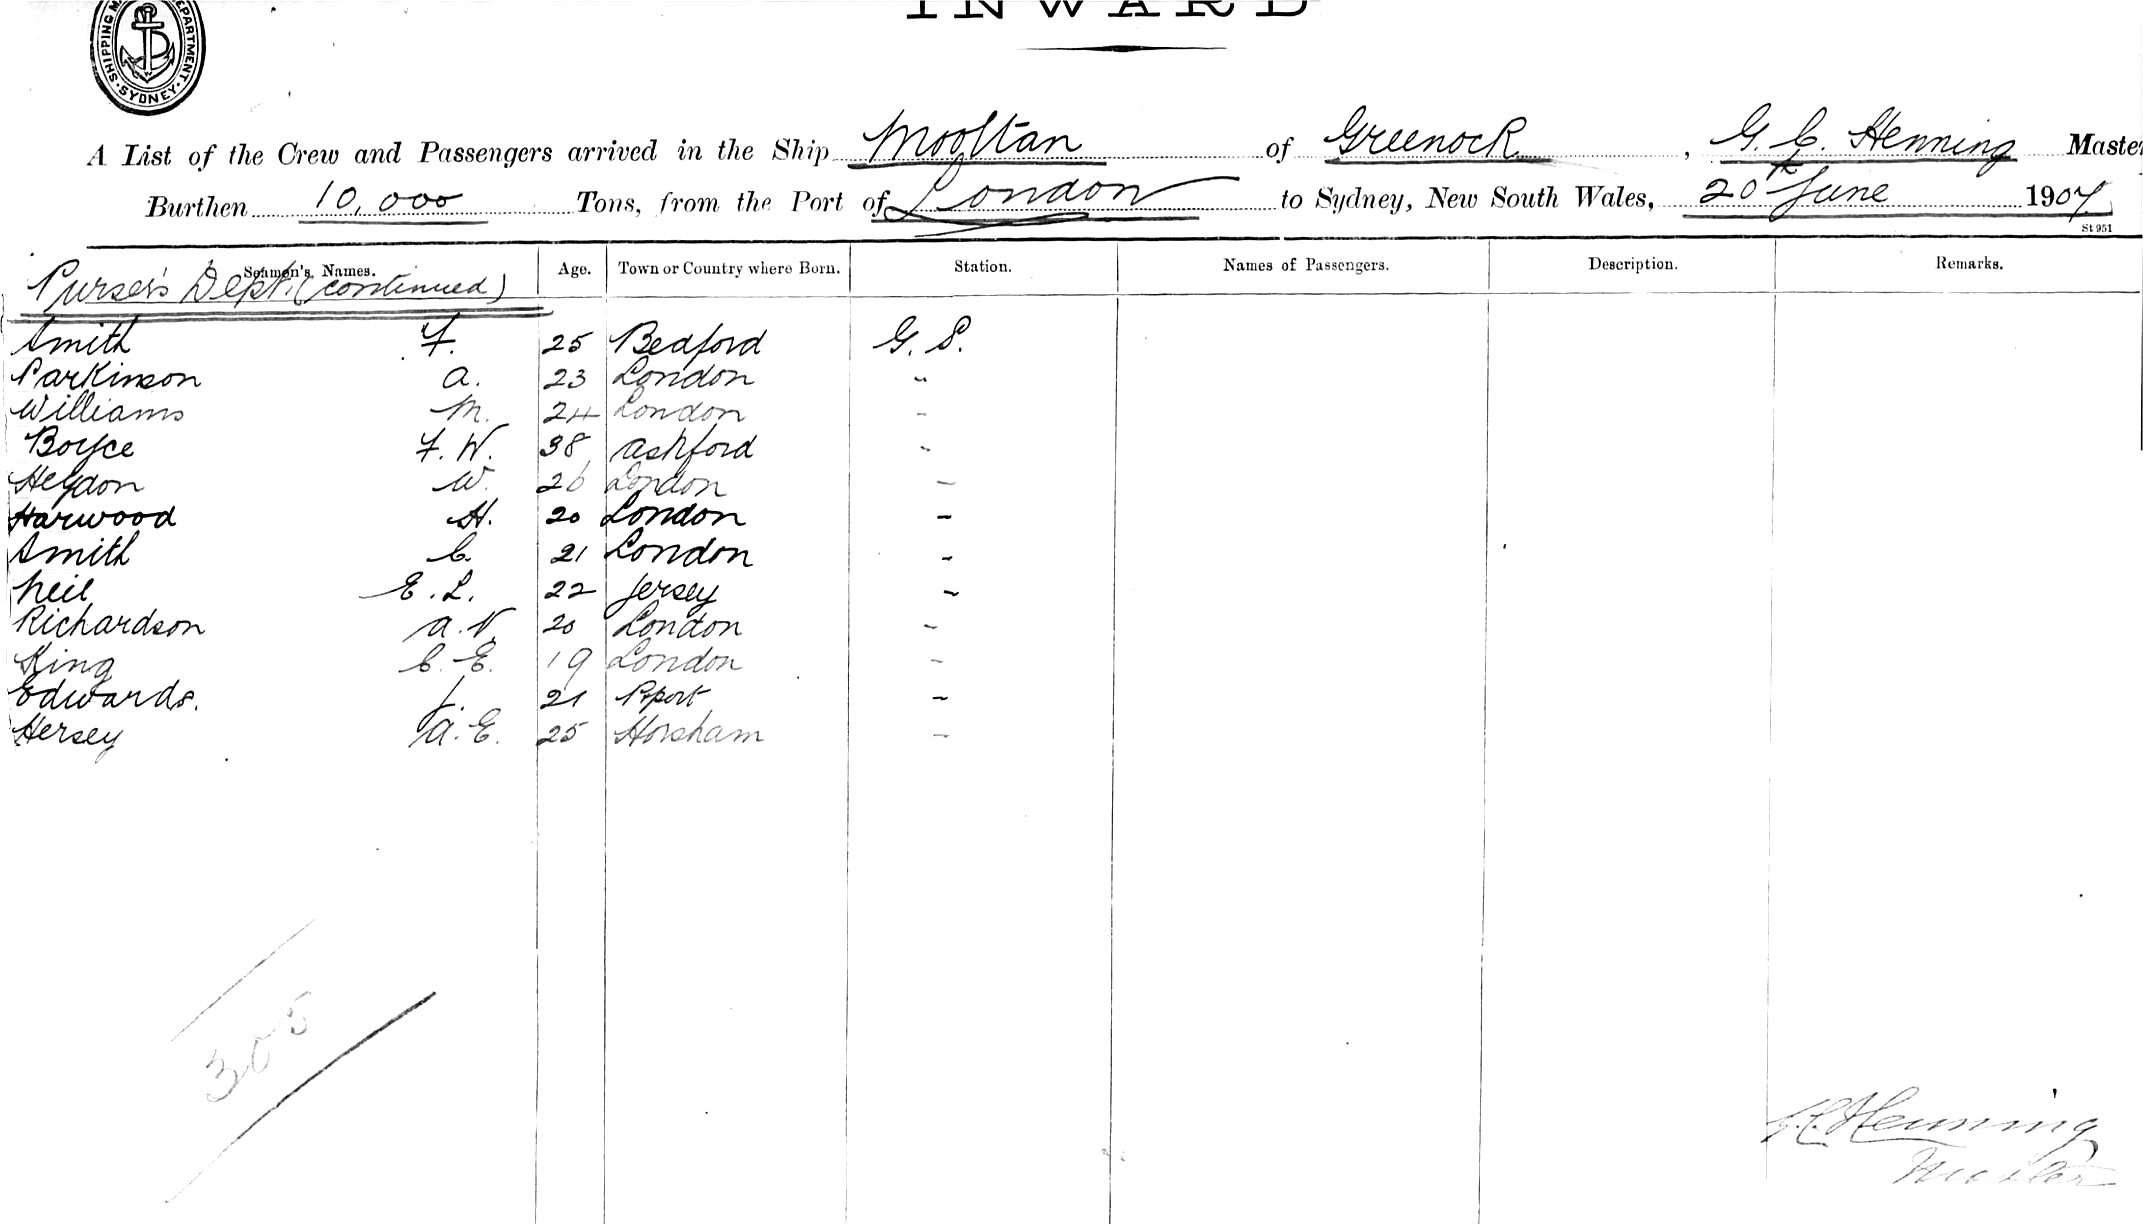 INWARD
SHIPPING M DEPARTMENT. SYDNEY.
A List of the Crew and Passengers arrived in the Ship Mooltan of Greenock, G. C. Henning Master
Burthen 10,000 Tons, from the Port of London to Sydney, New South Wales, 20th June 1907
St 951
Seamen's Names. Age. Town or Country where Born. Station. Names of Passengers. Description. Remarks.
Purser's Dept. (continued)
Smith F. 25 Bedford G. S.
Parkinson A. 23 London "
Williams M. 24 London "
Boyce F. W. 38 Ashford "
Heydon W. 26 London "
Harwood H. 20 London "
Smith C. 21 London "
Neil E. L. 22 Jersey "
Richardson A. V. 20 London "
King C. E. 19 London "
Edwards. J. 21 Pport "
Hersey A. E. 25 Horsham "
305
G. C. Henning
Master